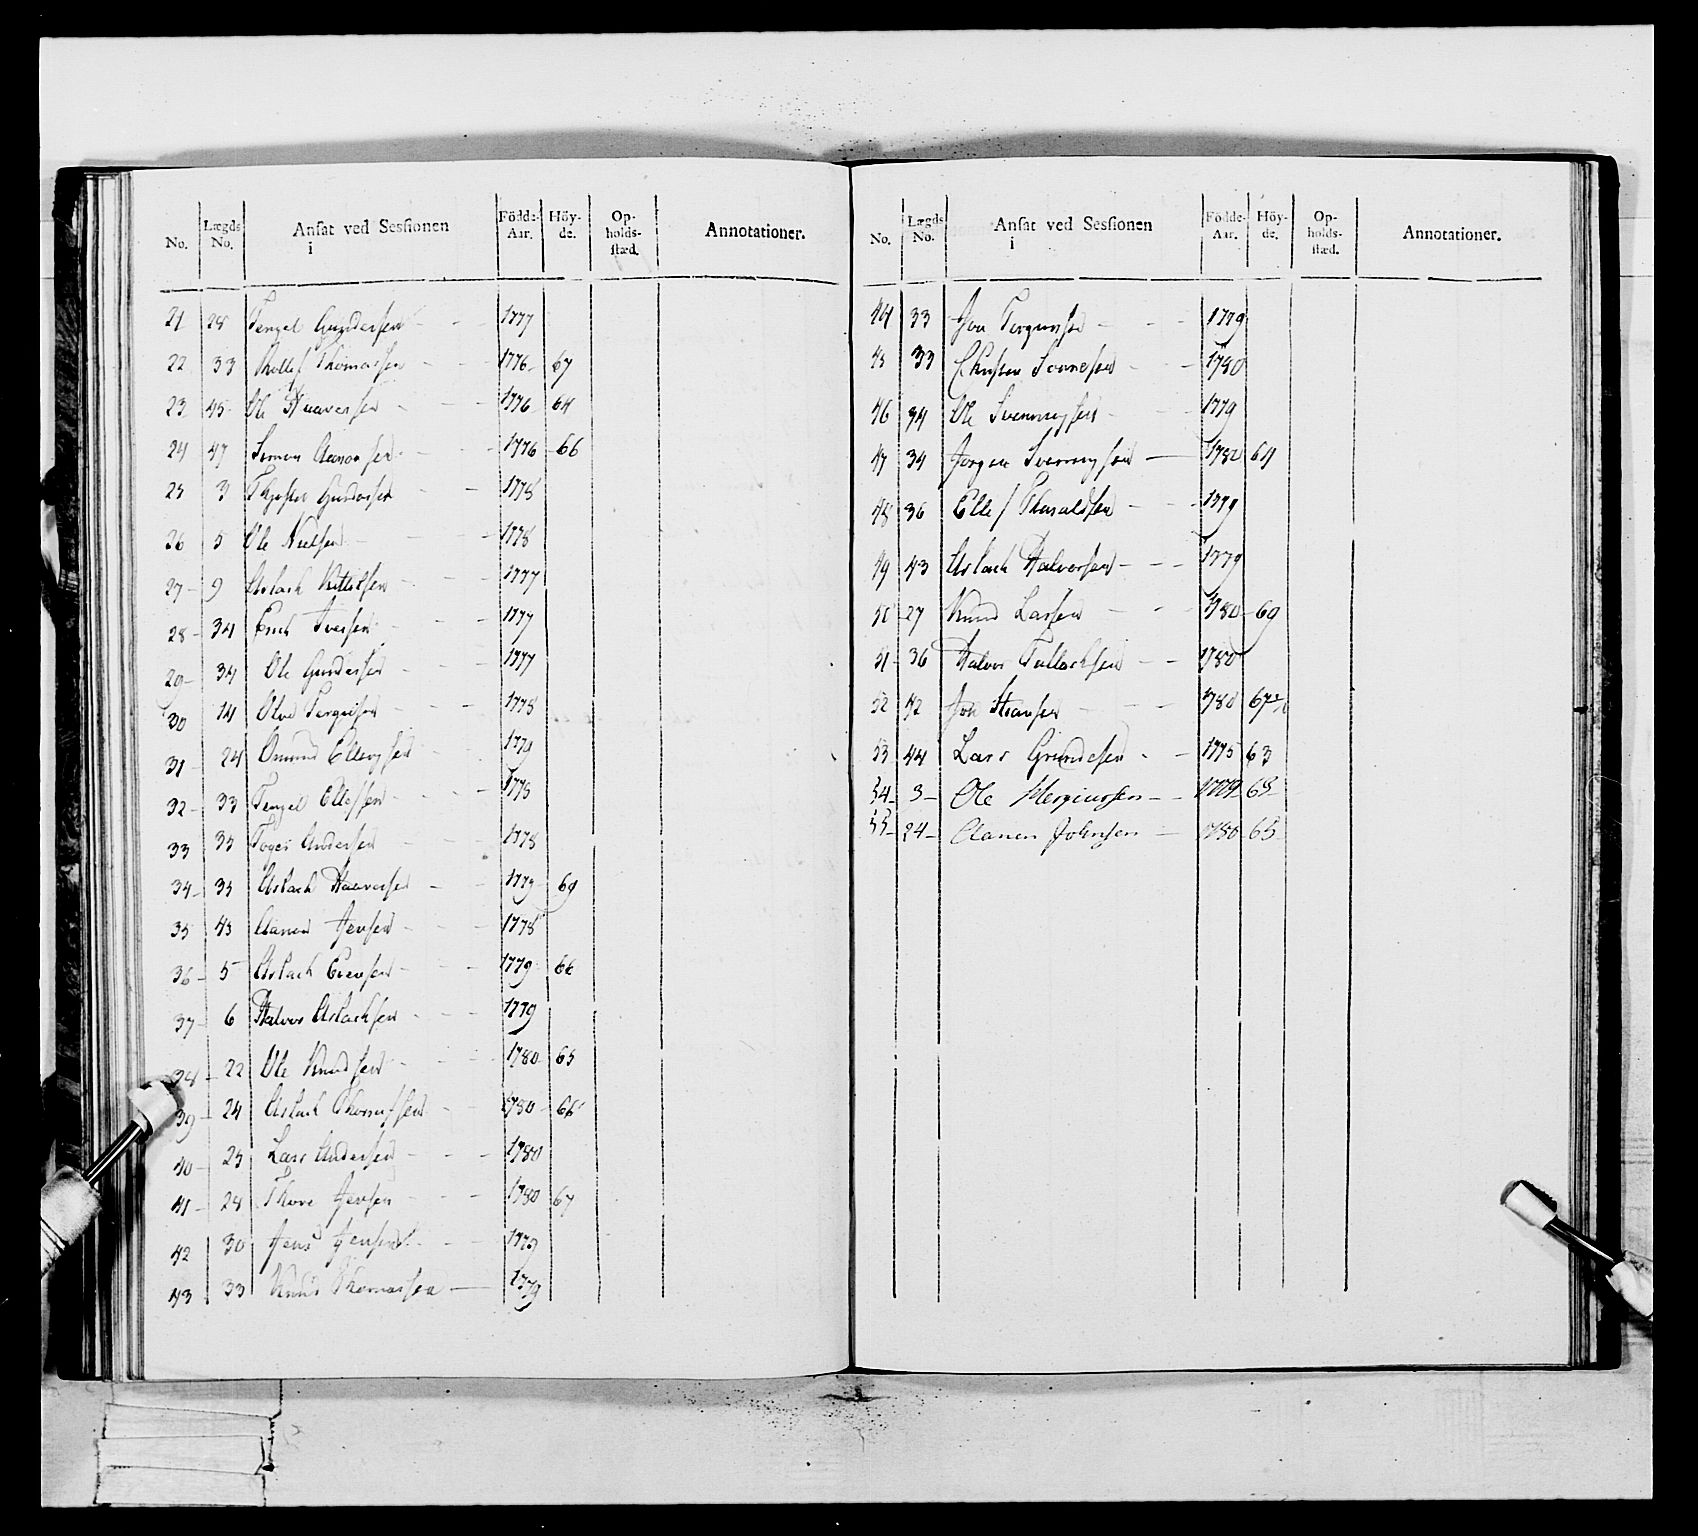 No. Lægds No. Ansat ved Sessionen i Födde-Aar. Höy-de. Op-holds-stæd. Annotationer.
21 28 Tengel Gundersen 1777
22 33 Thomassen 1776 67
23 45 Ole Haaversen 1776 64
24 47 Simon Aanonsen 1776 66
25 3 Gundersen 1778
26 5 Ole Nielsen 1778
27 9 Aslach Kittelsen 1777
28 34 Erich Iversen 1777
29 34 Ole Gundersen 1777
30 14 Olve Tergeisen 1778
31 24 Omund Ellevsen 1779
32 33 Tengel Ellefsen 1778
33 35 Anderssen 1778
34 35 Aslach Haaversen 1779 69
35 43 Aanen Jensen 1778
36 5 Aslach Evensen 1779 66
37 6 Halvor Aslachsen 1779
38 22 Ole Knudsen 1780 65
39 24 Aslach Thomassen 1780 66
40 25 Lars Andersen 1780
41 28 Thore Jensen 1780 67
42 30 Jens Jensen 1779
43 33 Knud Thomassen 1779
No. Lægds No. Ansat ved Sessionen i Födde-Aar. Höy-de. Op-holds-stæd. Annotationer.
44 33 Jon 1779
45 33 Christen 1780
46 34 Ole Svennungsen 1779
47 34 Jörgen Svennungsen 1780 64
48 36 Ellef Tharaldsen 1779
49 43 Aslach Halvorsen 1779
50 27 Knud Larsen 1780 69
51 36 Halvor Tallachsen 1780
52 42 Jon Hansen 1780 67
53 44 Lars Gundersen 1775 63
54 3 Ole 1779 65
55 24 Aanen Johnsen 1780 65